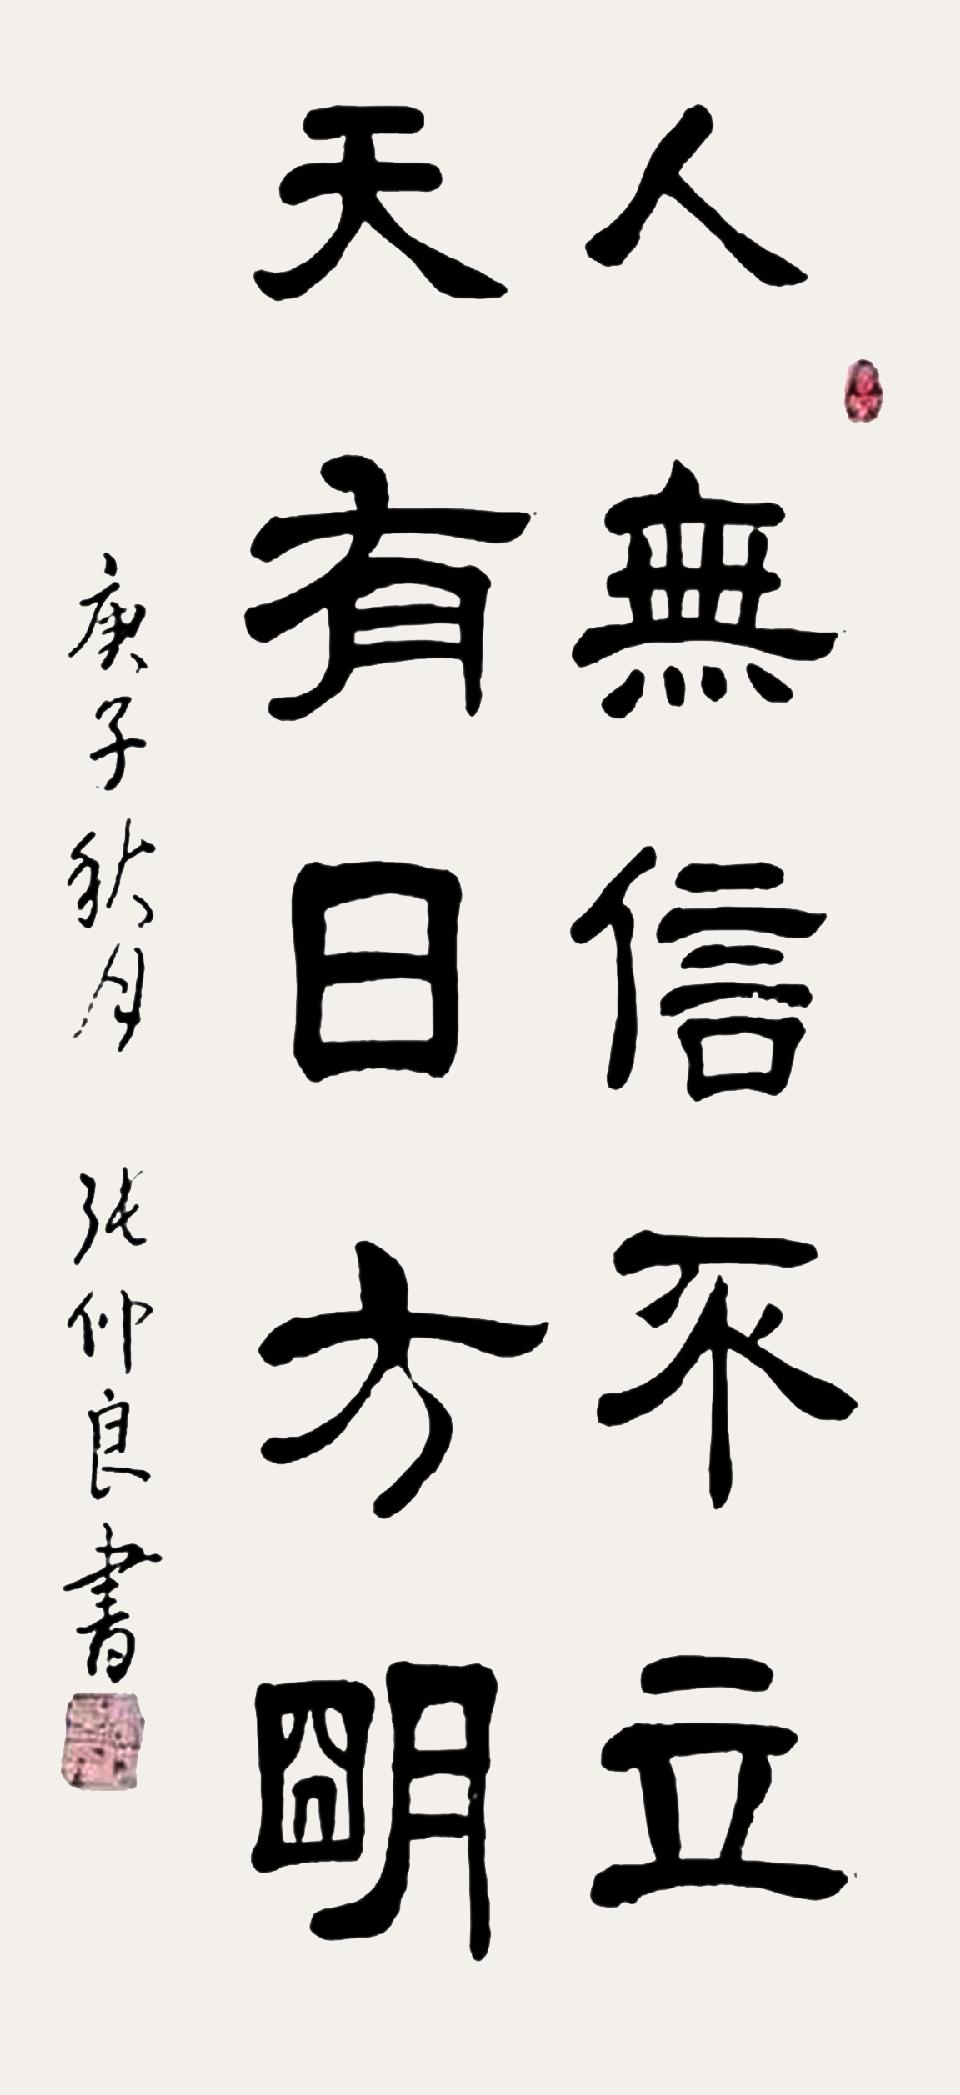 人無信不立
天有日方朙
庚子秋月 张仲良書